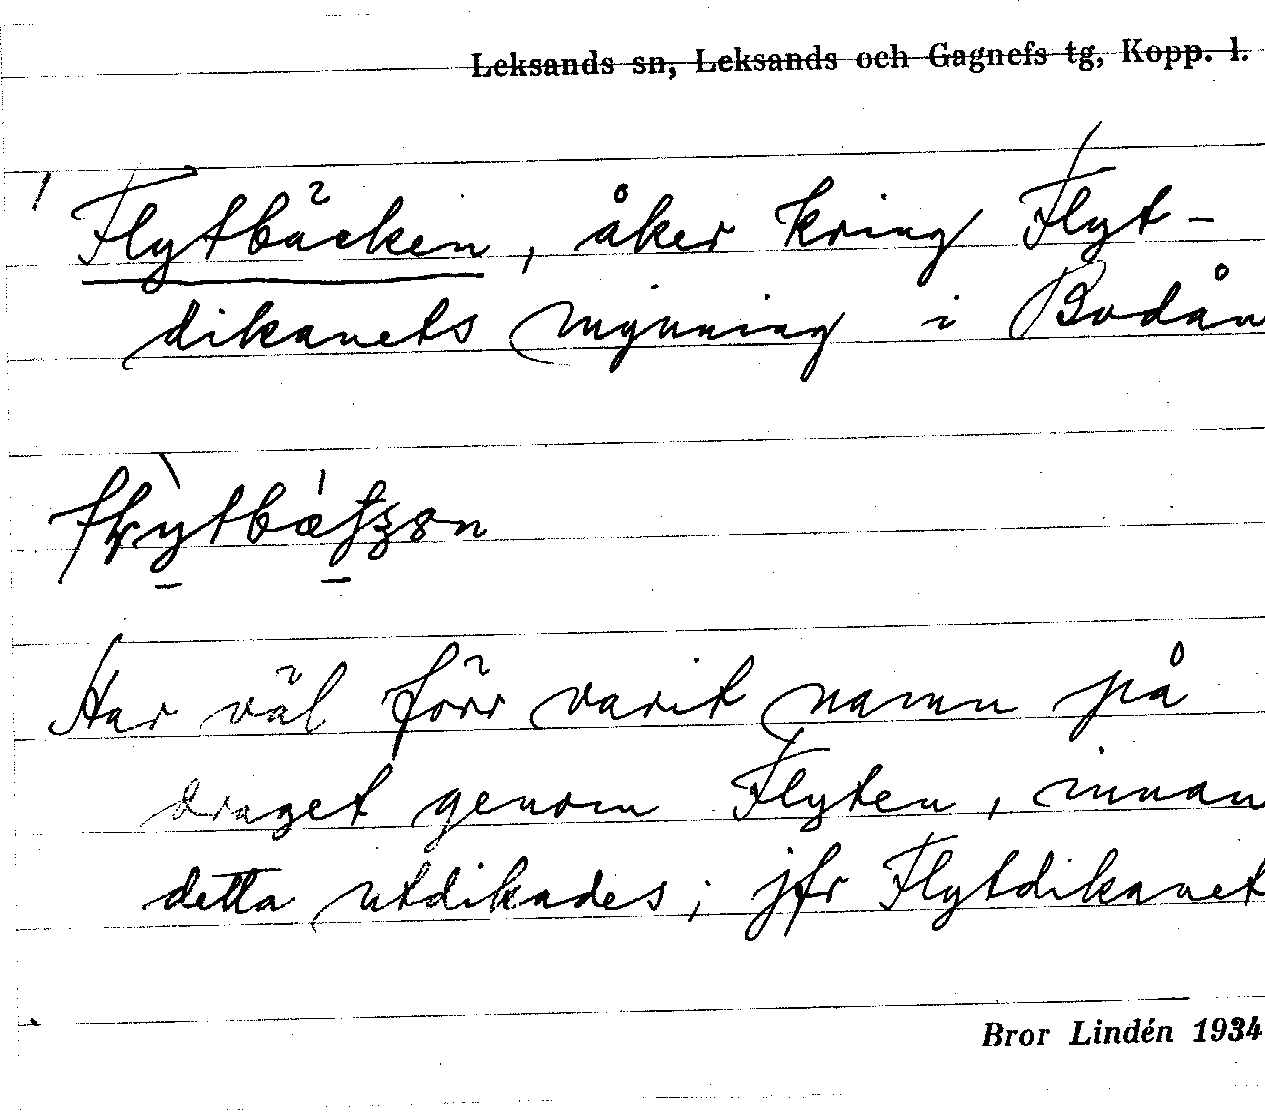 Leksands sn, Leksands och Gagnefs tg, Kopp. l.
1 Flytbäcken, åker kring Flyt-
dikanets mynning i Bodån
Har väl förr varit namn på
draget genom Flyten, innan
detta utdikades; jfr Flytdikanet
Bror Lindén 1934